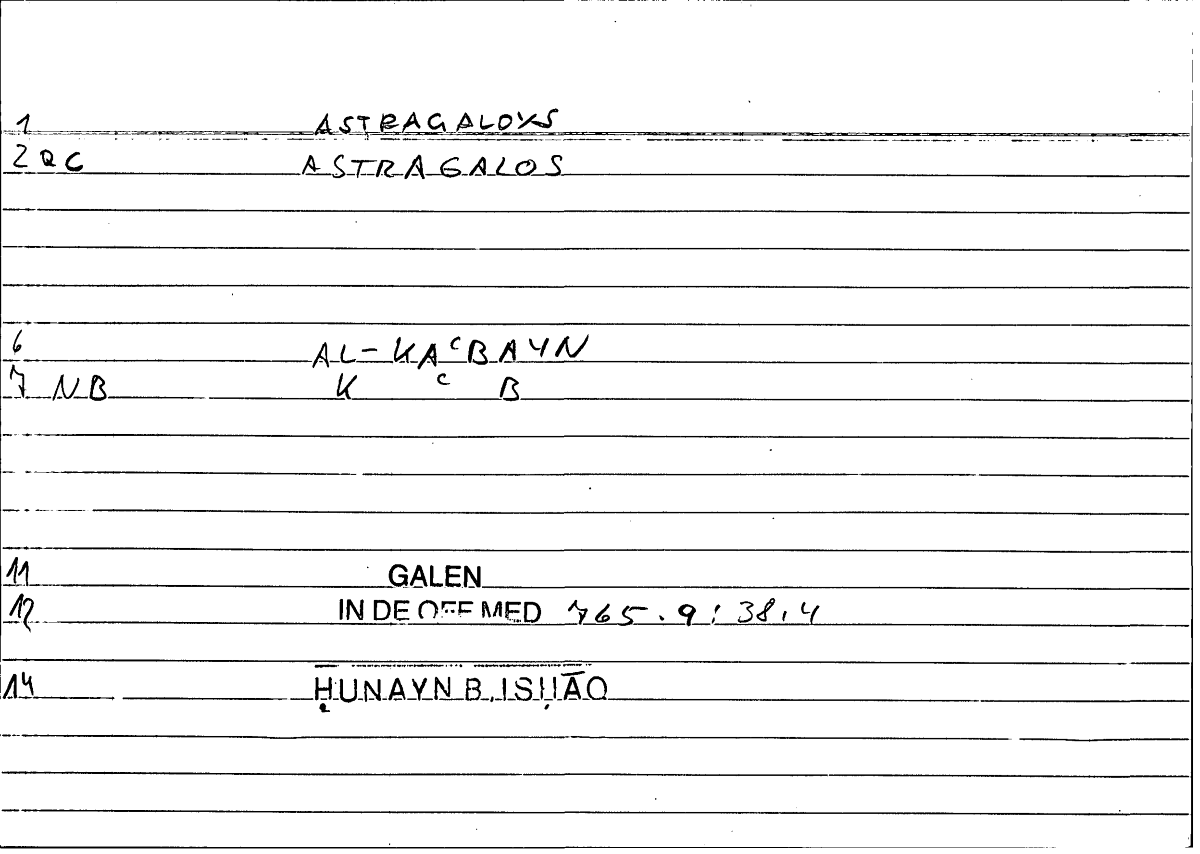 1 ASTRAGALOYS
2 QC ASTRAGALOS
6 AL-KAᶜBAYN
7 NB K ᶜ B
11 GALEN
12 IN DE OFF MED 765.9:38,4
14 ḤUNAYN B. ISḤĀQ